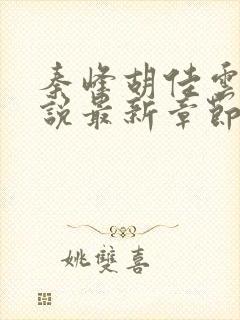 秦峰胡佳雲
說最新章節
姚雙喜